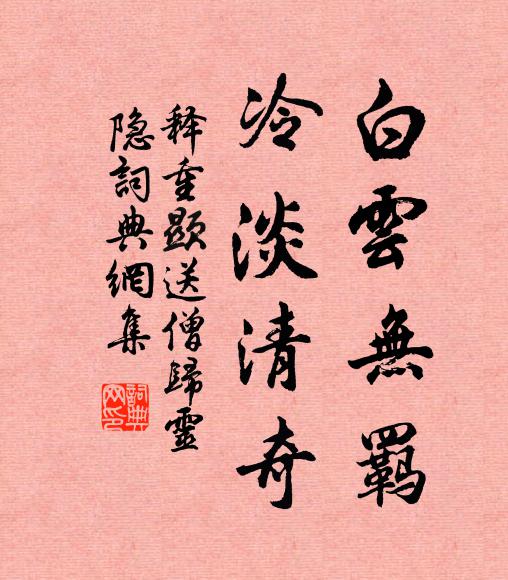 白雲無羈
冷淡清奇
释重顯送僧歸靈
隐詞典網集
詞典
网印